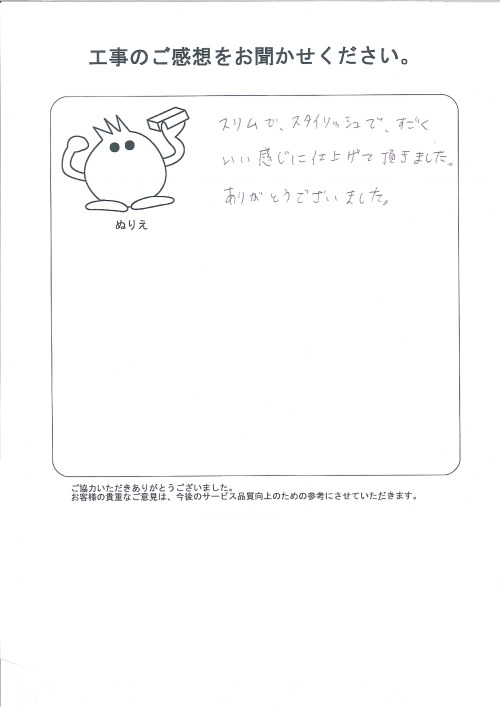 工事のご感想をお聞かせください。
スリムで、スタイリッシュで、すごく
いい感じに仕上げて頂きました。
ありがとうございました。
ぬりえ
ご協力いただきありがとうございました。
お客様の貴重なご意見は、今後のサービス品質向上のための参考にさせていただきます。